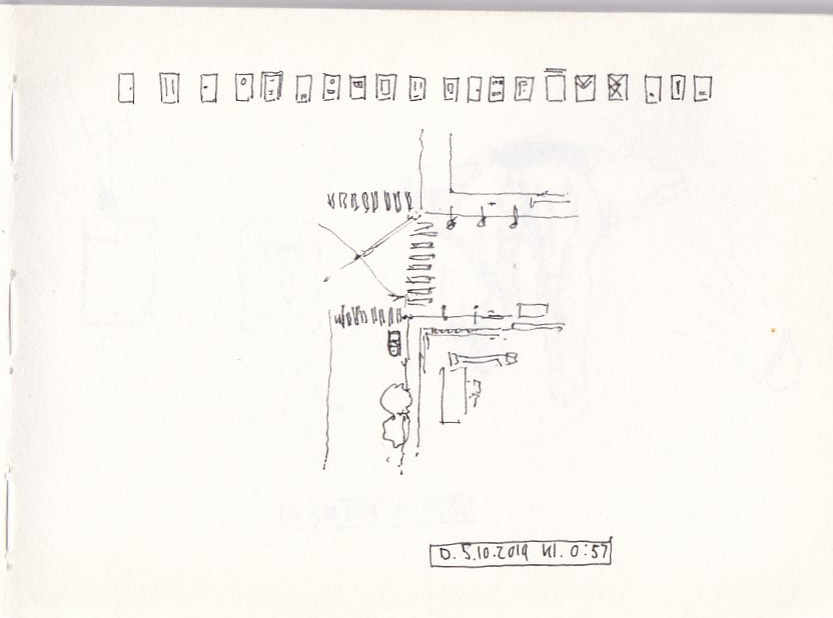 D. 5.10.2019 Kl. 0:57